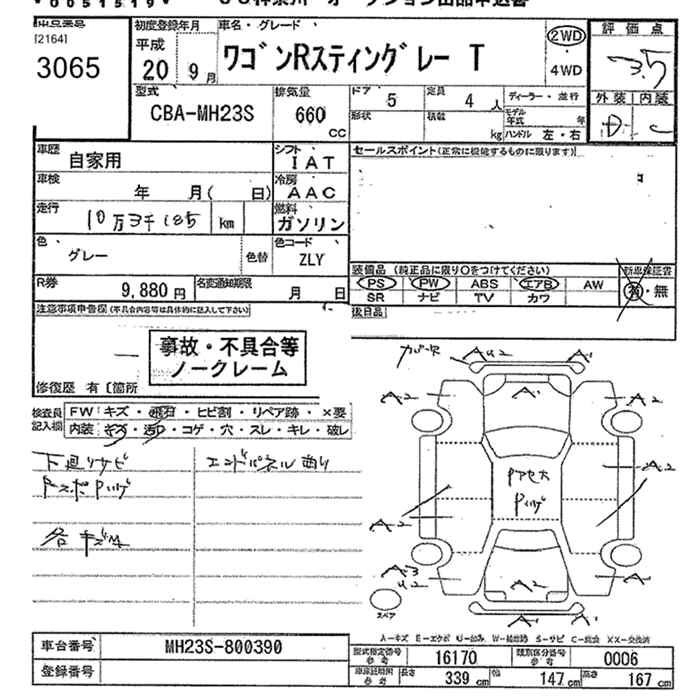 *0051519*
[2164]
3065
初度登録年月
平成
20年9月
車名・グレード
ワゴンRスティングレー T
2WD
・
4WD
評価点
3.5
外装 内装
D C
型式
CBA-MH23S
排気量
660
CC
ドア 5
定員 4人
ディーラー・並行
形状
積載 kg
モデル年式 年
ハンドル 左・右
車歴
自家用
シフト
IAT
セールスポイント(正常に機能するものに限ります)
車検
年 月( 日)
冷房
AAC
走行
10万3千185 km
燃料
ガソリン
色
グレー
色替
色コード
ZLY
R券
9,880円
名変通知期限
月 日
装備品 (純正品に限り○をつけてください)
PS PW ABS エアB AW
SR ナビ TV カワ
新車保証書
有・無
後日品
注意事項申告欄(不具合内容等は具体的に記入して下さい)
事故・不具合等
ノークレーム
修復歴 有〔箇所
検査員
記入欄
FW キズ・飛石・ヒビ割・リペア跡・×要
内装 キズ・汚れ・コゲ・穴・スレ・キレ・破レ
下廻りサビ
エンドパネル曲り
各キズ凹
A1
A2
A2
A2
A2
A2
A1
A3
U2
A2
A1
A1
スペア
A-キズ E-エクボ U-凹み W-補修跡 S-サビ C-腐食 XX-交換済
車台番号
MH23S-800390
登録番号
型式指定番号
参考
16170
類別区分番号
参考
0006
車庫証明用
参考
長さ 339cm
幅 147cm
高さ 167cm